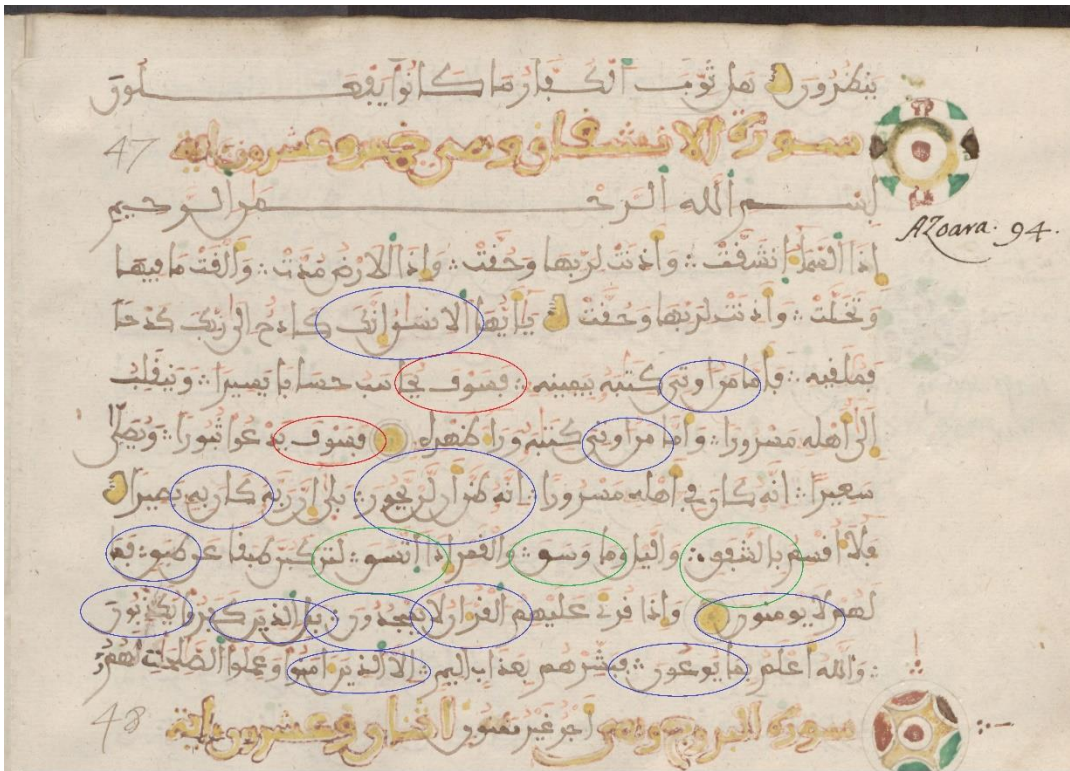 ينظرون هل ثوب الكفار ما كانوا يفعلون
سورة الانشقاق وهي خمس وعشرون ءاية 47
بسم الله الرحمن الرحيم
Azoara. 94.
اذا السماء انشقت وأذنت لربها وحقت وإذا الارض مدت وألقت ما فيها
وتخلت وأذنت لربها وحقت يأيها الانسن إنك كادح الى ربك كدحا
فملقيه فاما من اوتي كتبه بيمينه فسوف يحاسب حسابا يسيرا وينقلب
الى أهله مسرورا واما من اوتي كتبه وراء ظهره فسوف يدعوا ثبورا ويصلى
سعيرا انه كان في أهله مسرورا انه ظن ان لن يحور بلى ان ربه كان به بصيرا
فلا أقسم بالشفق واليل وما وسق والقمر إذا اتسق لتركبن طبقا عن طبق فما
لهم لا يومنون وإذا قرئ عليهم القرءان لا يسجدون بل الذين كفروا يكذبون
والله أعلم بما يوعون فبشرهم بعذاب اليم الا الذين ءامنوا وعملوا الصلحات لهم
اجر غير ممنون
سورة البروج وهي اثنان وعشرون ءاية 48